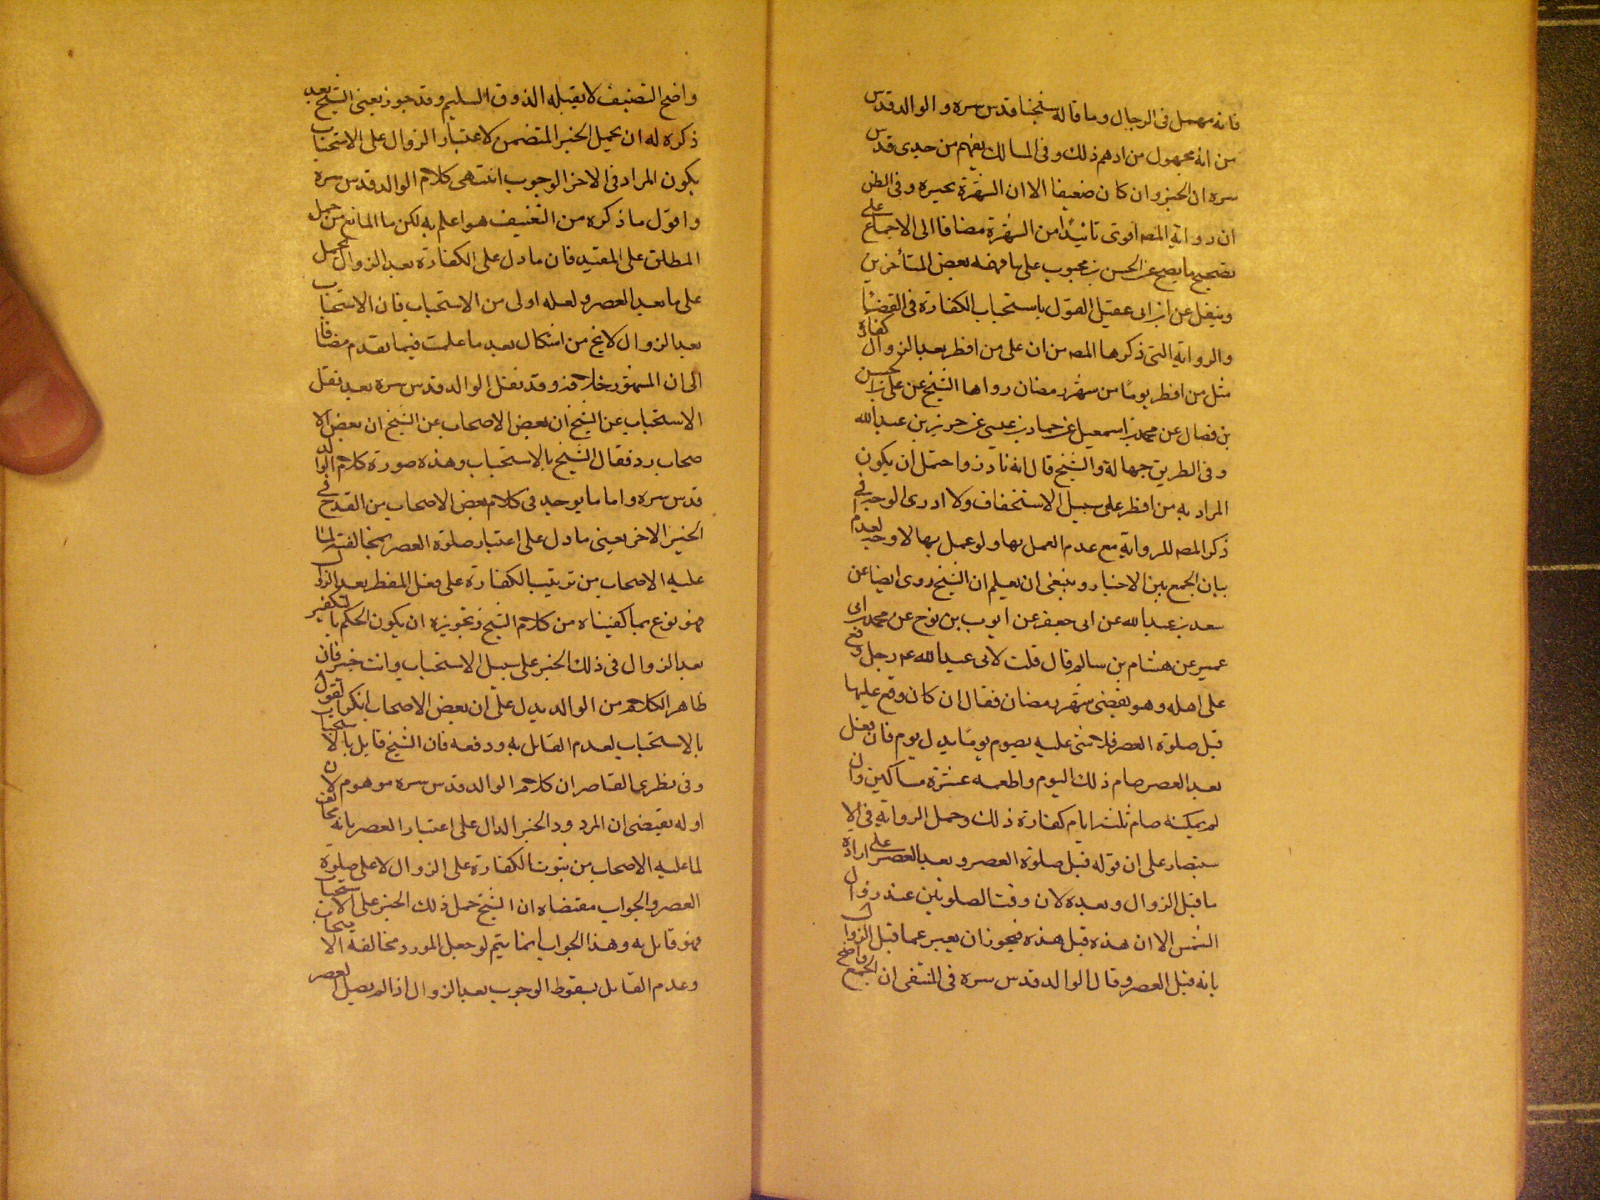 فانه مهمل فى الرجال وما قاله شيخنا قدس سره والوالد قدس
من انه مجهول من ادهم ذلك وفى المسالك يفهم من جدى قدس
سره ان الخبر وان كان ضعيفا الا ان الشهرة يجبره وفى الظن
ان رواية المصه اقوى تائيدا من الشهرة مضافا الى الاجماع على
تصحيح ما يصح عن الحسن بن محبوب على ما فهمه بعض المتأخرين
وينقل عن ابن ابى عقيل القول باستحباب الكفارة فى القضاء
والرواية التى ذكرها المصه من ان على من افطر بعد الزوال كفارة
مثل من افطر يوما من شهر رمضان رواها الشيخ عن على بن الحسن
بن فضال عن محمد بن اسمعيل عن حماد بن عيسى عن حريز بن عبد الله
وفى الطريق جهالة والشيخ قال انه نادر واحتمل ان يكون
المراد به من افطر على سبيل الاستخفاف ولا ادرى الوجه فى
ذكر المصه للرواية مع عدم العمل بها ولو عمل بها لا وجه لعدم
بيان الجمع بين الاخبار وينبغى ان يعلم ان الشيخ روى ايضا عن
سعد بن عبد الله عن ابى جعفر عن ايوب بن نوح عن محمد بن ابى
عمير عن هشام بن سالم قال قلت لابى عبد الله عم رجل وقع
على اهله وهو يقضى شهر رمضان فقال ان كان وقع عليها
قبل صلوة العصر فلا شئ عليه يصوم يوما بدل يوم فان فعل
بعد العصر صام ذلك اليوم واطعمه عشرة مساكين وان
لم يمكنه صام ثلثة ايام كفارة ذلك وحمل الرواية فى الا
ستبصار على ان قوله قبل صلوة العصر وبعد العصر على ارادة
ما قبل الزوال وبعده لان وقت الصلوتين عند زوال
الشمس الا ان هذه قبل هذه فيجوز ان يعبر عما قبل الزوال
بانه قبل العصر وقال الوالد قدس سره فى المنتقى ان الجمع واضح
واضح التصنيف لا يقبله الذوق السليم وقد جوز يعنى الشيخ بعد
ذكره له ان يحمل الخبر المتضمن لاعتبار الزوال على الاستحباب
يكون المراد فى الاخر الوجوب انتهى كلام الوالد قدس سره
واقول ما ذكره من التعنيف هو اعلم به لكن ما المانع من حمل
المطلق على المقيد فان ما دل على الكفارة بعد الزوال يحمل
على ما بعد العصر ولعله اولى من الاستحباب فان الاستحباب
بعد الزوال لا يخ من اشكال بعد ما علمت فيما تقدم مضافا
الى ان المشهور خلافه وقد نقل الوالد قدس سره بعد نقل
الاستحباب عن الشيخ ان بعض الاصحاب عن الشيخ ان بعض الا
صحاب رد فقال الشيخ بالاستحباب وهذه صورة كلام الوالد
قدس سره واما ما يوجد فى كلام بعض الاصحاب من القدح فى
الخبر الاخر يعنى ما دل على اعتبار صلوة العصر بمخالفته لما
عليه الاصحاب من ترتيب الكفارة على فعل المفطر بعد الزوال
فهو مدفوع بما كفيناه من كلام الشيخ وتجويزه ان يكون الحكم بالتكفير
بعد الزوال فى ذلك الخبر على سبيل الاستحباب وانت خبير فان
ظاهر الكلام من الوالد يدل على ان بعض الاصحاب انكر القول
بالاستحباب لعدم القائل به ودفعه فان الشيخ قايل بالاستحباب
وفى نظرى القاصر ان كلام الوالد قدس سره موهوم لان
اوله يقتضى ان المردود الخبر الدال على اعتبار العصر بانه مخالف
لما عليه الاصحاب من ثبوت الكفارة على الزوال لا على صلوة
العصر والجواب مقتضاه ان الشيخ حمل ذلك الخبر على الاستحباب
فهو قائل به وهذا الجواب انما يتم لو جعل المورد مخالفة الا
وعدم القائل بسقوط الوجوب بعد الزوال اذا لم يصل العصر